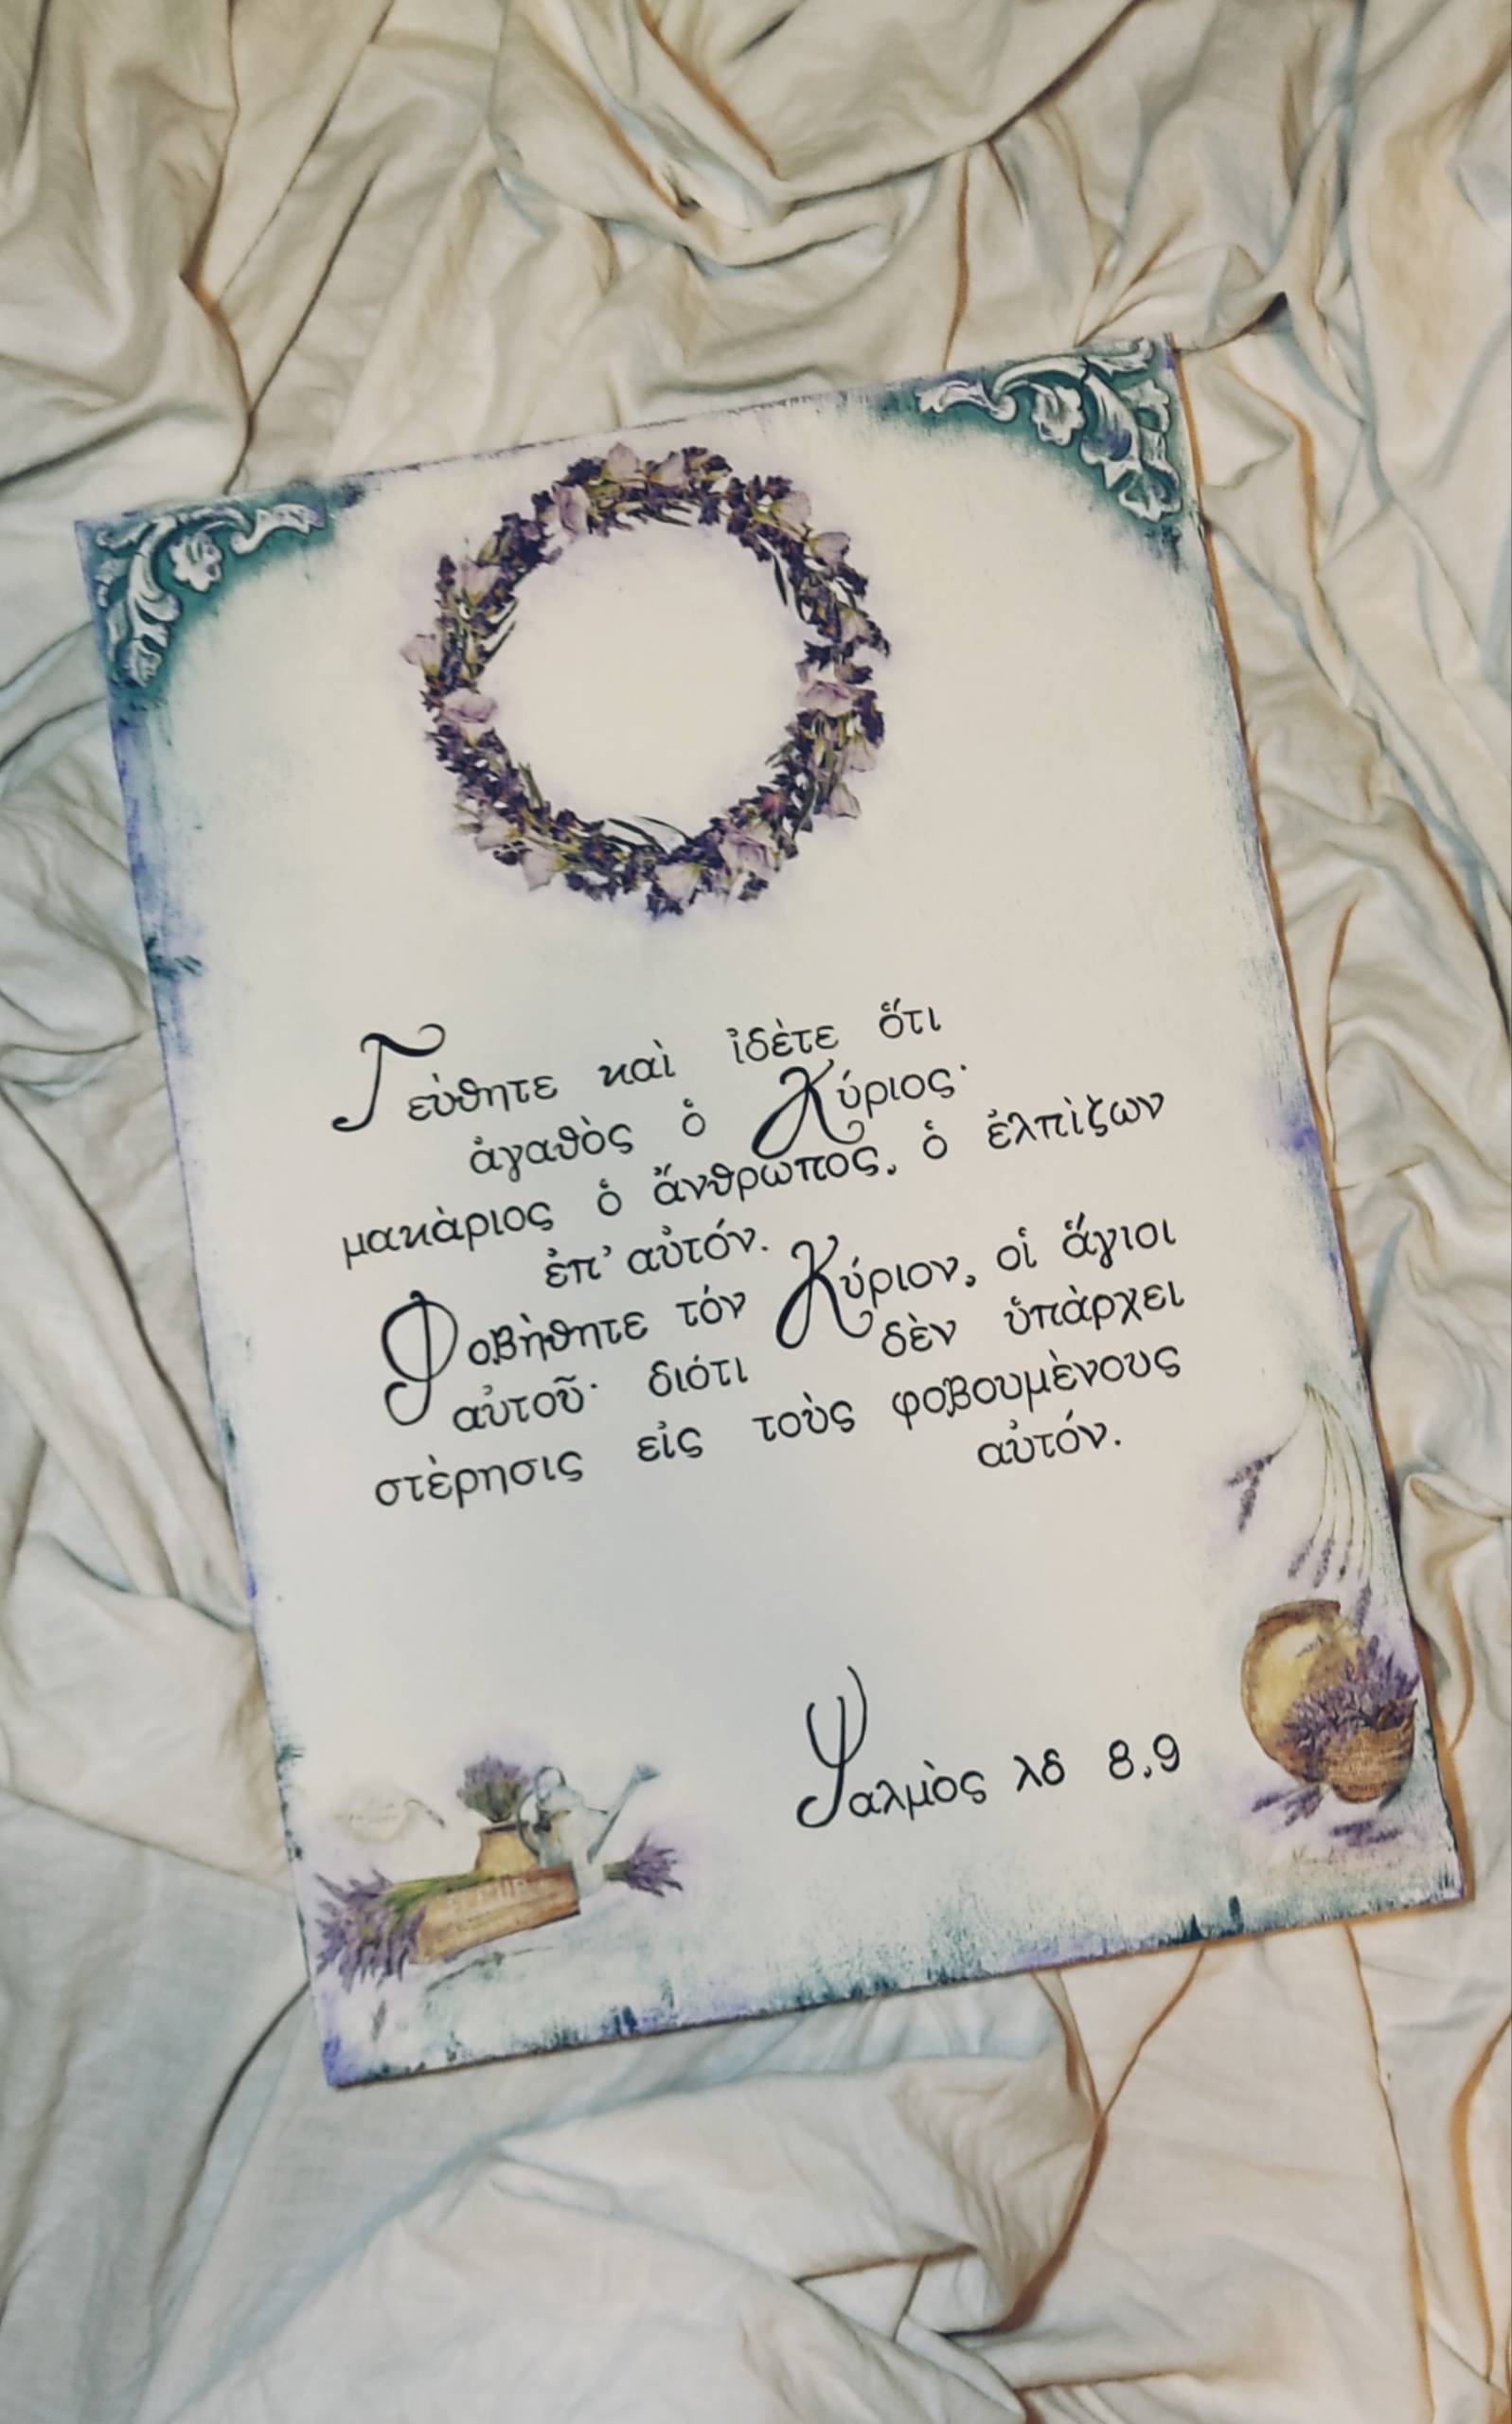 Γεύθητε καὶ ἰδὲτε ὅτι
ἀγαθὸς ὁ Κύριος·
μακὰριος ὁ ἄνθρωπος, ὁ ἐλπὶζων
ἐπ' αὐτόν.
Φοβὴθητε τόν Κύριον, οἱ ἅγιοι
αὐτοῦ· διότι δὲν ὑπὰρχει
στὲρησις εἰς τοὺς φοβουμὲνους
αὐτόν.
Ψαλμὸς λδ 8,9